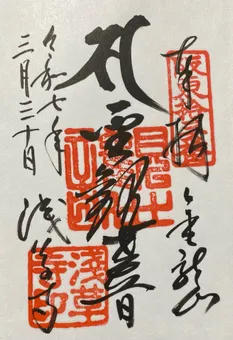 奉拝
坂東拾三番
金龍山
聖観世音
令和七年
三月三十日
浅草寺
浅草寺印